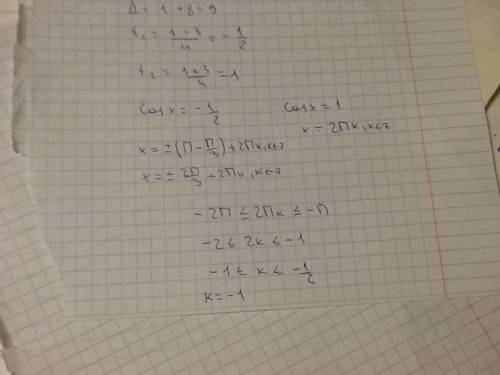 Δ = 1 + 8 = 9
t₁ = (1 - 3)/4 = -1/2
t₂ = (1+3)/4 = 1
cos x = -1/2    cos x = 1
x = 2πk, k∈z
x = ±(π - π/3) + 2πk, k∈z
x = ± 2π/3 + 2πk, k∈z
-2π ≤ 2πk ≤ -π
-2 ≤ 2k ≤ -1
-1 ≤ k ≤ -1/2
k = -1